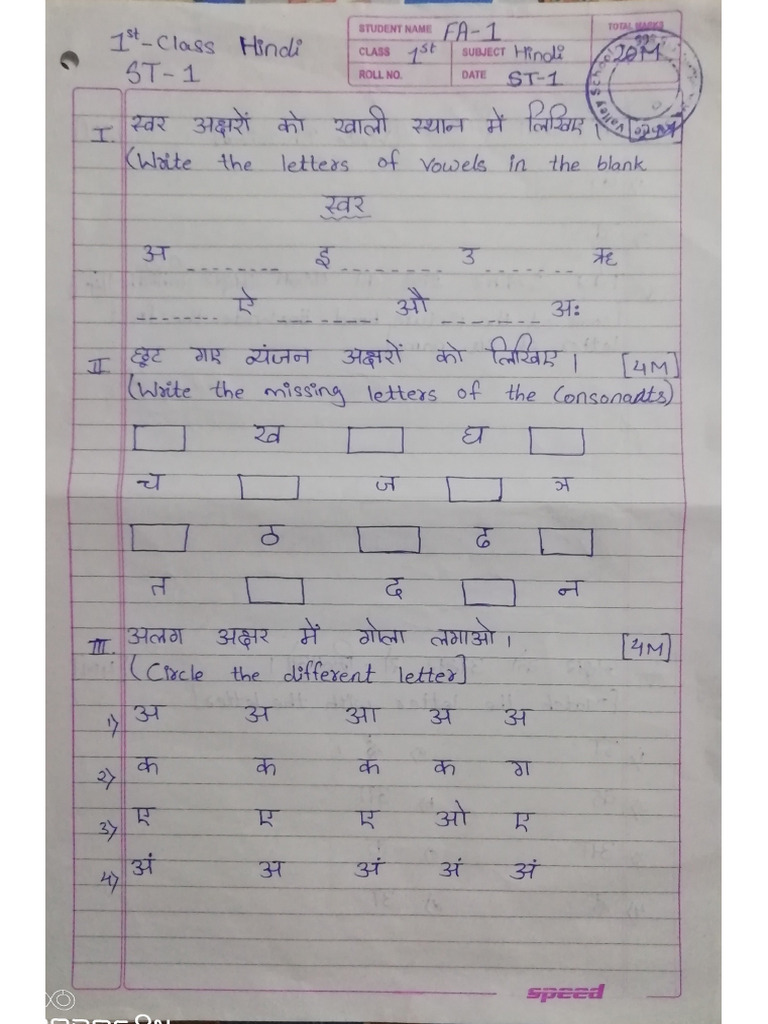 1st-Class Hindi
ST-1
STUDENT NAME FA-1
CLASS 1st SUBJECT Hindi
ROLL NO. DATE ST-1
TOTAL MARKS
20M
Valley School
I स्वर अक्षरों को खाली स्थान में लिखिए।
(Write the letters of vowels in the blank
स्वर
अ -------- इ -------- उ ------- ऋ
------- ऐ -------- औ -------- अः
II छूट गए व्यंजन अक्षरों को लिखिए। [4M]
(Write the missing letters of the Consonants)
ख घ
च ज ञ
ठ ढ
त द न
III. अलग अक्षर में गोला लगाओ। [4M]
(Circle the different letter]
1) अ अ आ अ अ
2) क क क क ग
3) ए ए ए ओ ए
4) अं अ अं अं अं
speed